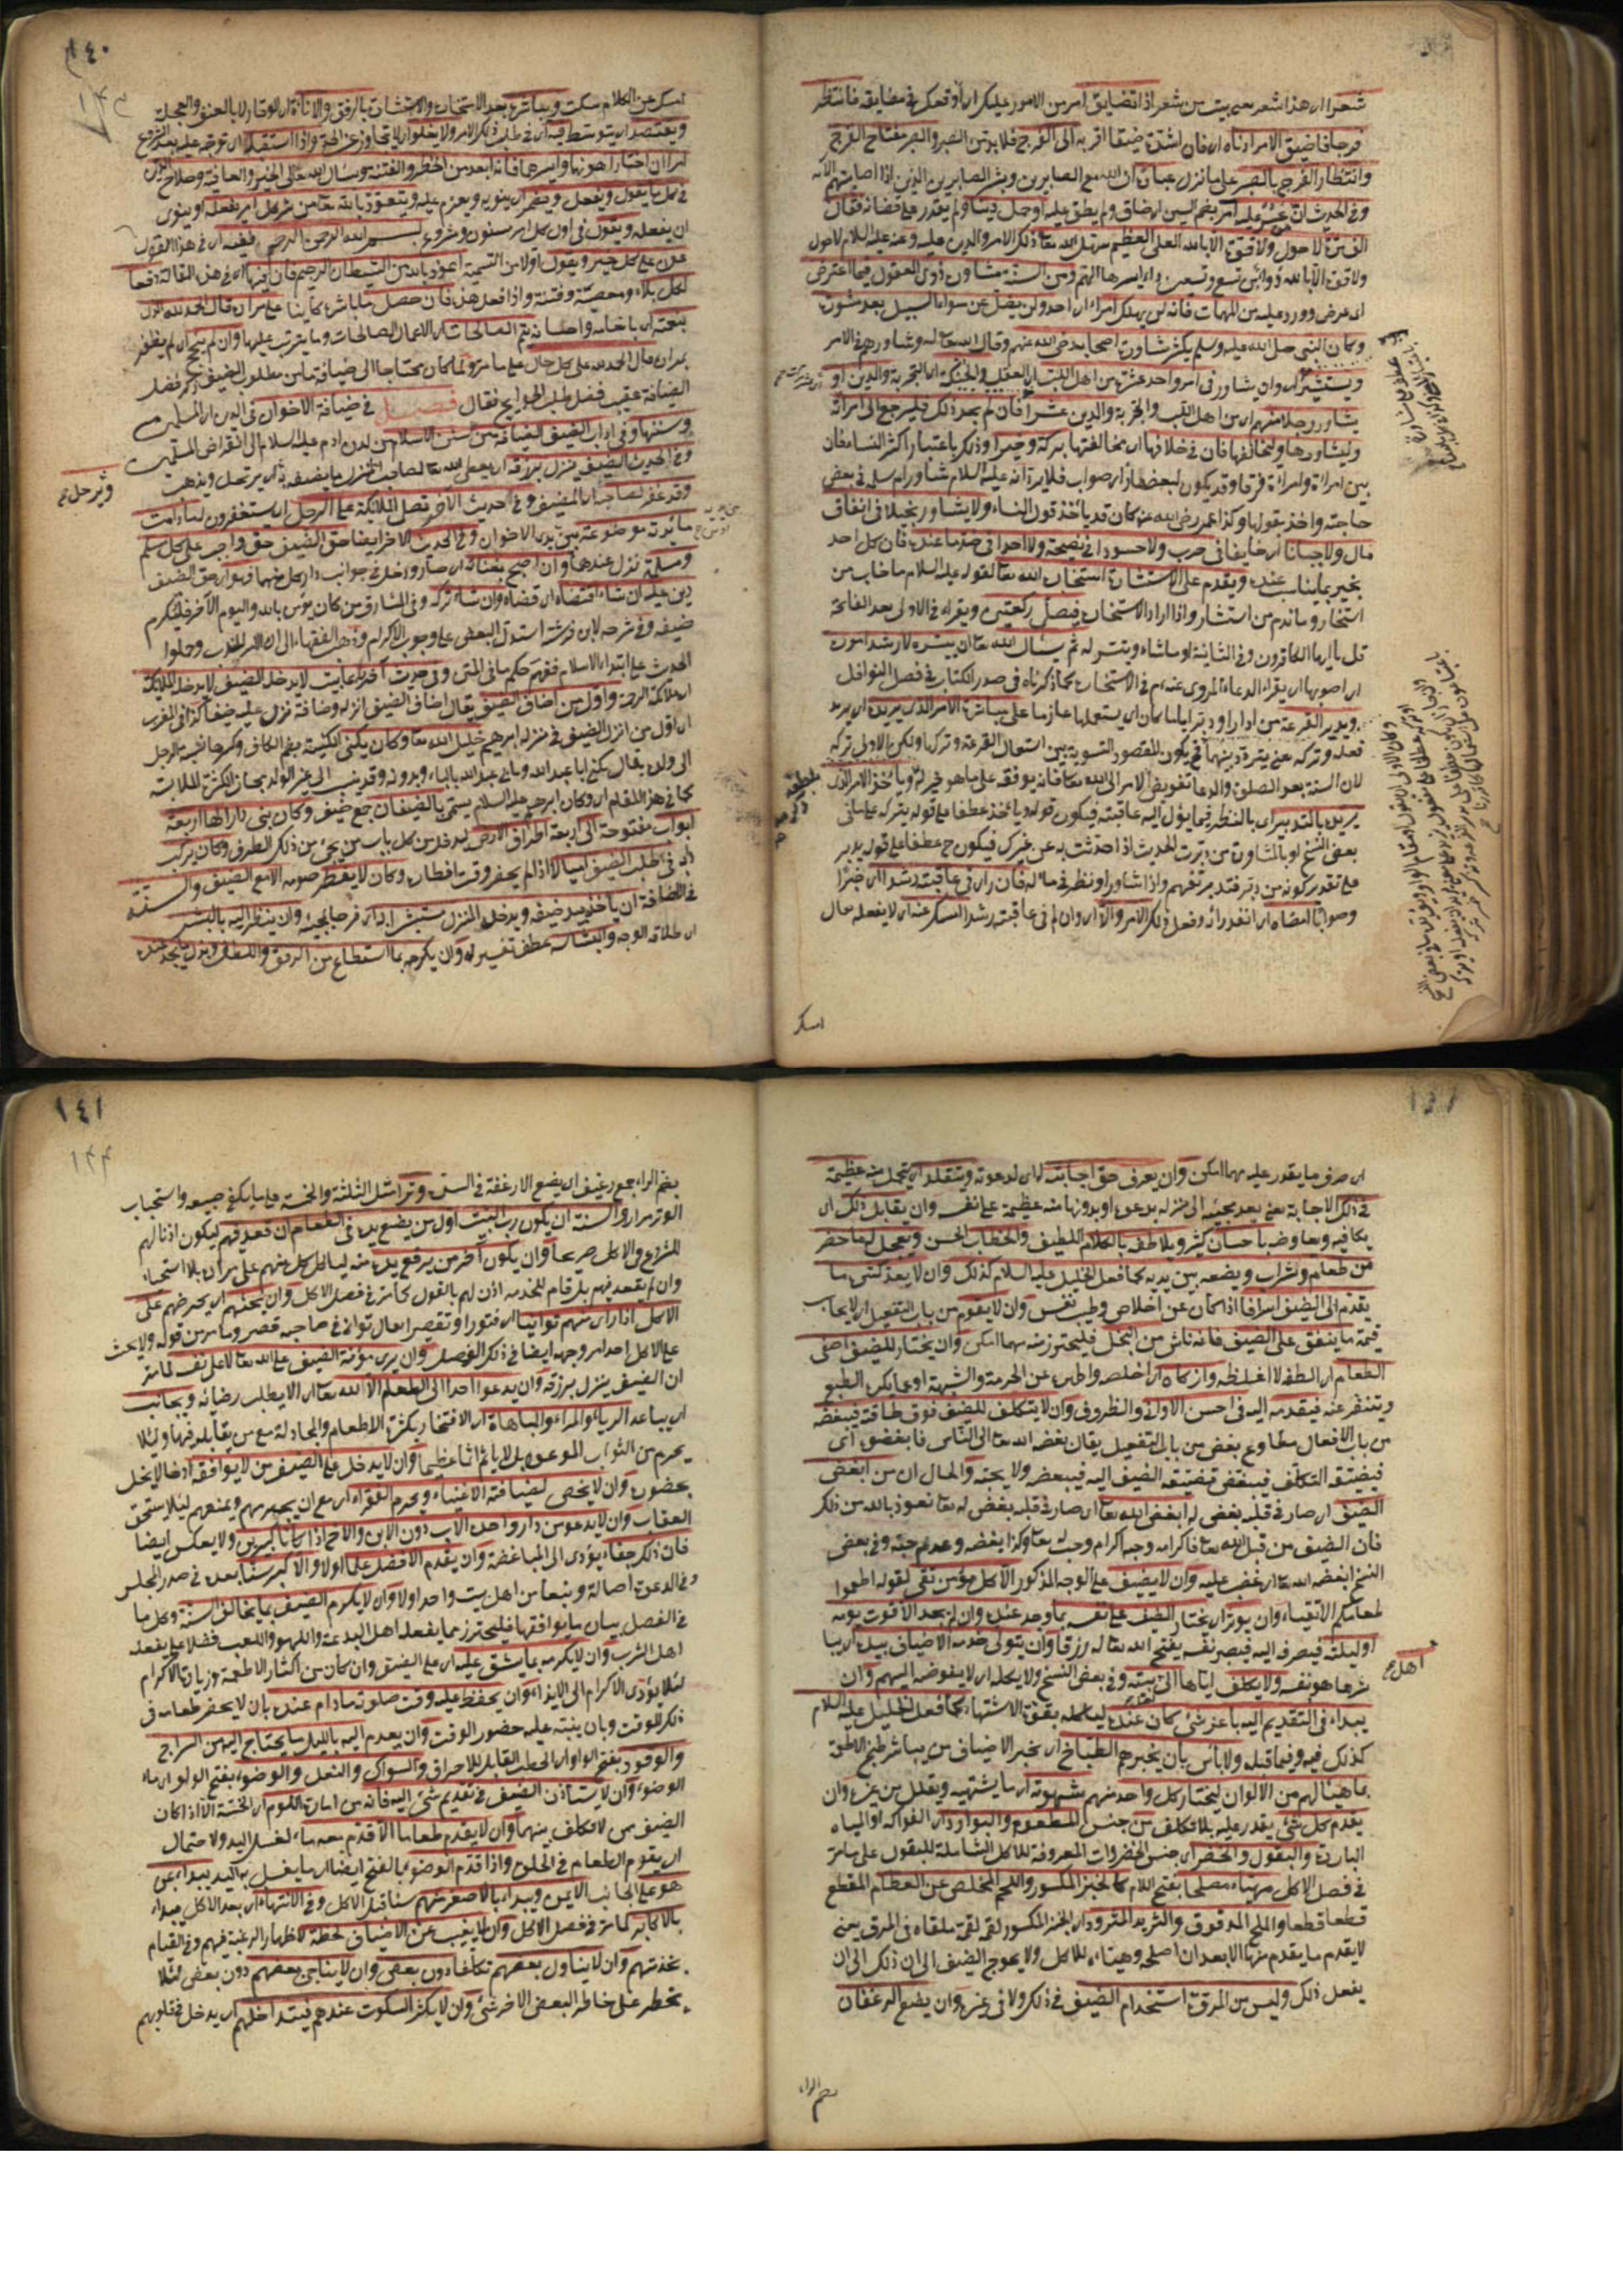 شعرا اى هذا شعر يعنى بيت من شعر اذا تضايق امر من الامور عليك اى اوقعك فى مضايقه فانتظر
فرجا فاضيق الامر ادناه اى فان اشتدت ضيقا اقربه الى الفرج فلا بد من الصبر والصبر مفتاح الفرج
وانتظار الفرج بالصبر على ما نزل عبادة ان الله مع الصابرين وبشر الصابرين الذين اذا اصابتهم الاية
وفى الحديث ان عسر عليه امر بضم السين اى ضاق ولم يطق عليه او حل دينا ولم يقدر على قضائه فقال
الف مرة لا حول ولا قوة الا بالله العلى العظيم سهل الله تعا ذلك الامر والدين عليه وعنه عليه السلام لا حول
ولا قوة الا بالله دواء من تسع وتسعين داء ايسرها الهم ومن السنة مشاورة ذوى العقول فيما اعترض
اى عرض وورد عليه من المهمات فانه لن يهلك امرء اى احد ولن يضل عن سواء السبيل بعد مشورة
وكان النبى صلى الله عليه وسلم يكثر مشاورة اصحابه رضى الله عنهم وقال الله تعا له وشاورهم فى الامر
ويستشير اى وان يشاور فى امر واحد عشرة من اهل اللب اى العقل والحنكة اى التجربة والدين او
يشاور رجلا منهم اى من اهل اللب والتجربة والدين عشرا فان لم يجد ذلك فليرجع الى امراته
وليشاورها وليخالفها فان فى خلافها اى مخالفتها بركة وخيرا وذلك باعتبار اكثر النساء فان
بين امراة وامراة فرقا وقد يكون لبعضها راى صواب فلا يرد انه عليه السلام شاور ام سلمة فى بعض
حاجته واخذ بقولها وكذا عمر رضى الله عنه كان قد ياخذ قول النساء ولا يشاور بخيلا فى انفاق
مال ولا جبانا اى خايفا فى حرب ولا حسودا فى نصيحة ولا احدا فى ضد ما عنده فان كل احد
يخبر بما يناسب عنده ويقدم على الاستشارة استخارة الله تعا لقوله عليه السلام ما خاب من
استخار وما ندم من استشار واذا اراد الاستخارة فيصلى ركعتين ويقراء فى الاولى بعد الفاتحة
قل يا ايها الكافرون وفى الثانية او ما شاء ويتيسر له ثم يسأل الله تعا ان ييسره لارشد اموره
اى اصوبها اى يقراء الدعاء المروى عنه ع م فى الاستخارة كما ذكرناه فى صدر الكتاب فى فصل النوافل
ويدير القرعة من ادار او دبر اياما كان اى يستعملها عازما على مباشرة الامر الذى يريده اى يريد
فعله وتركه يعنى يتردد بينهما فح يكون المقصود التسوية بين استعمال القرعة وتركها ولكن الاولى تركه
لان السنة بعد الصلوة والدعا تفويض الامر الى الله تعا فانه يوفقه على ما هو خير له وياخذ الامر الذى
يريده بالتدبير اى بالنظر فيما يؤل اليه عاقبته فيكون قوله وياخذ عطفا على قوله يتركه على ما فى
بعض النسخ او بالمشاورة من دبرت الحديث اذا حدثت به عن غيرك فيكون ح عطفا على قوله يدير
على تقدير كونه من دبر فتدبر تفهم واذا شاور او نظر فى ماله فان راى فى عاقبته رشدا اى خيرا
وصوابا امضاه اى انفذ رائه وفعل ذلك الامر والا اى وان لم فى عاقبته رشدا امسك عنه اى لا يفعله حال
امسك
١٤٠
١٤٣
امسك عن الكلام سكت ويباشره بعد الاستخارة والاستشارة بالرفق والاناءة اى الوقار لا بالعنف والعجلة
ويقتصد اى يتوسط فيه اى فى طلب ذلك الامر ولا يغلو اى لا يتجاوز عن الحد واذا استقبله اى توجه عليه بعد الشروع
امران اختار اهونهما وايسرهما فانه ابعد من الخطر والفتنة وسأل الله تعالى الخير والعافية وصلاح الدارين
فى كل ما يقول ويفعل ويضمر اى ينويه ويعزم عليه ويتعوذ بالله تعا من شر كل امر يفعله او ينوى
ان يفعله ويقول فى اول كل امر مسنون ومشروع بسم الله الرحمن الرحيم ففيه اى فى هذا القول
عون على كل خير ويقول اولا من التسمية اعوذ بالله من الشيطان الرجيم فان فيها اى فى هذه القالة دفعا
لكل بلاء ومعصية وفتنة واذا فعل هذا فان حصل ما باشره كائنا على مراده قال الحمد لله الذى
بنعمته اى باحسانه تتم الصالحات اى الاعمال الصالحات وما يترتب عليها وان لم ينجح اى لم يظفر
بمراده قال الحمد لله على كل حال على ما مر ولما كان محتاجا الى ضيافة ما من مطلوب الضيف ذكر فصل
الضيافة عقيب فصل طلب الحوايج فقال فصل فى ضيافة الاخوان فى الدين اى المسلمين
وسننها وفى اداب الضيف الضيافة من سنن الاسلام من لدن ادم عليه السلام الى انقراض المسلمين
وفى الحديث الضيف ينزل برزقه اى يعطى الله تعا لصاحب المنزل ما يضيفه به اى يرتحل ويذهب
وير حل صح
وقد غفر لصاحبه اى المضيف وفى حديث الآخر تصلى الملائكة على الرجل اى يستغفرون له ما دامت
مائدته موضوعة بين يدى الاخوان وفى الحديث الآخر ايضا حق الضيف حق واجب على كل مسلم
ومسلمة نزل عندها وان اصبح بفنائه اى صار وداخل فى جوانب دار كل منهما فهو اى حق الضيف
دين عليه ان شاء اقتضاه اى قضاه وان شاء تركه وفى المشارق من كان يؤمن بالله واليوم الآخر فليكرم
ضيفه وفى شرحه لابن فرشته استدل البعض على وجوب الاكرام وذهب الفقهاء الى ان الامر للندب وحملوا
الحديث على ابتداء الاسلام ففهم حكم ما فى المتن وفى حديث آخر اى بيت لا يدخله الضيف لا يدخله الملائكة
اى ملائكة الرحمة واول من اضاف الضيف يقال اضاف الضيف انزله وضافه نزل عليه ضيفا كذا فى المغرب
اى اول من انزل الضيف فى منزله ابرهيم خليل الله تعا وكان يكنى الكنية بضم الكاف وكسرها نسبة الرجل
الى ولده يقال يكنى ابا عبد الله وبابى عبد الله بالباء وبدونه وقد ينسب الى غير الولد مجازا لكثرة الملابسة
كما فى هذا المقام اى وكان ابرهيم عليه السلام يسمى ابا الضيفان جمع ضيف وكان بنى دارا لها اربعة
ابواب مفتوحة الى اربعة اطراف الارض ليدخل من كل باب من يجئ من ذلك الطرف وكان يركب
اى فى طلب الضيف ليالا اذا لم يحضر وقت افطاره وكان لا يفطر صومه الا مع الضيف والسنة
فى الضيافة ان ياخذ بيد ضيفه ويدخله المنزل مستبشرا به اى فرحا بمجيئه وان ينظر اليه بالبشر
اى طلاقة الوجه والبشاشة عطف تفسير له وان يكرمه بما استطاع من الرفق واللطف وبذل ما يجد عنده
اى صرف ما يقدر عليه مهما امكن وان يعرف حق اجابته له اى لدعوته ويتقلد اى يتحمل منه عظيمة
فى ذلك الاجابة يعنى يعد مجيئه الى منزله بدعوة او بدونها منة عظيمة على نفسه وان يقابل ذلك اى
يكافيه ويعاوضه باحسان كثير ويلاطفه بالكلام اللطيف والخطاب الحسن ويعجل له ما حضر
من طعام وشراب ويضعه بين يديه كما فعل الخليل عليه السلام كذلك وان لا يعد كثير ما
يقدم الى الضيف اسرافا اذا كان عن اخلاص وطيب نفس وان لا يقوم من باب التفعيل اى لا يحاسب
قيمة ما ينفق على الضيف فانه ناش من البخل فليحترز منه مهما امكن وان يختار للضيف اصفى
الطعام اى الطفه لا اغلظه وازكاه اى اخلصه واطهره عن الحرمة والشبهة او عما يكره الطبع
ويتنفر عنه فيقدمه اليه فى احسن الاوانى والظروف وان لا يتكلف للضيف فوق طاقته فيبغضه
من باب الافعال مطاوع بغض من باب التفعيل يقال بغضه الله تعا الى الناس فابغضوه اى
فيضيقه التكلف فيبغض تضييقه الضيف اليه فيبعضه ولا يحبه والحال ان من ابغض
الضيف اى صار فى قلبه بغض له ابغضه الله تعا اى صار فى قلبه بغض له تعا نعوذ بالله من ذلك
فان الضيف من قبل الله تعا فاكرامه وحبه اكرام وحب له تعا وكذا بغضه وعدم حبه وفى بعض
النسخ ابغضه الله تعا اى غضب عليه وان لا يضيف على الوجه المذكور الا كل مؤمن تقى لقوله اطعموا
طعامكم الاتقياء وان يوثر اى يختار الضيف على نفسه بما وجد عنده وان لم يجد الا قوت يومه
او ليلته فيصرفه اليه فيصبر نفسه يفتح الله تعا له رزقا وان يتولى خدمة الاضياف بيده اى بما
شرعها هو نفسه ولا يكلف اياها الى بيته وفى بعض النسخ ولا يكله اى لا يفوضه اليهم وان
اهل صح
يبداء فى التقديم اليه باعز شئ كان عنده ليأكله بقوة الاشتهاء كما فعل الخليل عليه السلام
كذلك فيه وفيما قبله ولا بأس بان يخبرهم الطباخ اى يخبر الاضياف من يباشر طبخ الاطعمة
ما هيئا لهم من الالوان ليختار كل واحد منهم شهوته اى ما يشتهيه ويقلل من غيره وان
يقدم كل شئ يقدر عليه بلا تكلف من جنس المطعوم والبوارد اى الفواكه او المياه
الباردة والبقول والخضر اى جنس الخضروات المعروفة للاكل الشاملة للبقول على ما مر
فى فصل الاكل مهيئاء مصلحا بفتح اللام كالخبز المكسور واللحم المخلص عن العظام المقطع
قطعا قطعا والملح المدقوق والثريد المثرود اى الخبز المكسور لقمة لقمة ملقاة فى المرق يعنى
لا يقدم ما يقدم منها الا بعد ان اصلحه وهيئاه للاكل ولا يحوج الضيف الى ان ذلك الى ان
يفعل ذلك وليس من المروة استخدام الضيف فى ذلك ولا فى غيره وان يضع الرغفان
بضم الراء
١٤١
١٤٤
بضم الراء جمع رغيف اى يضع الارغفة فى السفرة وترا مثل الثلثة والخمسة على ما يكفى جميعه واستحباب
الوتر مرارا والسنة ان يكون رب البيت اول من يضع يده فى الطعام ان قعد فيهم ليكون اذنا لهم
للشروع فى الاكل صريحا وان يكون آخر من يرفع يده منه ليأكل كل منهم على مراده بلا استحياء
وان لم يقعد فيهم بل قام للخدمة اذن لهم بالقول كما مر فى فصل الاكل وان يحثهم اى يحرضهم على
الاكل اذا راى منهم توانيا اى فتورا وتقصيرا يقال توانى فى حاجته قصر وما مر من قوله ولا يحث
على الاكل احدا مر وجهه ايضا فى ذلك الفصل وان يرى مؤنة الضيف على الله تعا لا على نفسه لما مر
ان الضيف ينزل برزقه وان يدعو احدا الى الطعام الا لله تعا اى الا يطلب رضائه ويجانب
اى يباعد الرياء والمراء والمباهاة اى الافتخار بكثرة الاطعام والمجادلة مع من يقابله فيها ولئلا
يحرم من الثواب الموعود بل لا ياثم اثما عظيما وان لا يدخل على الضيف من لا يوافقه اذ لا يخل
بحضوره وان لا يخص لضيافته الاغنياء ويحرم الفقراء اى مع ان يحرمهم ويمنعهم لئلا يستحق
العقاب وان لا يدعو من دار واحدة الاب دون الابن والاخ اذا كانا كبيرين ولا يعكس ايضا
فان ذلك جفاء يؤدى الى المباغضة وان يقدم الافضل علما اولا والاكبر سنا بعده فى صدر المجلس
وفى الدعوة اصالة وتبعا من اهل بيت واحد اولا وان لا يكرم الضيف بما يخالف السنة وكل ما
فى الفصل بيان ما يوافقها فليحترز مما يفعله اهل البدعة واللهو واللعب فضلا عما يفعله
اهل الشرب وان لا يكرمه بما يشق عليه اى على الضيف وان كان من اكثار الاطعمة وزيادة الاكرام
لئلا يؤدى الاكرام الى الايذاء وان يحفظ عليه وقت صلوته ما دام عنده بان لا يحضر طعامه فى
ذلك الوقت وبان ينبه عليه حضور الوقت وان يعد م اليه بالليل ما يحتاج اليه من السراج
والوقود بفتح الواو اى الحطب القابل للاحراق والسواك والنعل والوضوء بفتح الواو اى ماء
الوضوء وان لا يستأذن الضيف فى تقديم شئ اليه فانه من امارة اللوم اى الخسة الا اذا كان
الضيف ممن لا تكلف بينهما وان لا يقدم طعاما الا قدم معه ماء لغسل اليد ولاحتمال
ان يقوم الطعام فى الحلق واذا قدم الوضوء بالفتح ايضا اى ما يغسل به اليد يبداء بمن
هو على الجانب الايمن ويبداء بالاصغر منهم سنا قبل الاكل وفى الانتهاء اى بعد الاكل يبداء
بالاكابر كما مر فى فصل الاكل وان لا يغيب عن الاضياف لحظة لاظهار الرغبة فيهم وفى القيام
بخدمتهم وان لا يناول بعضهم تكلفا دون بعض وان لا يناجى بعضهم دون بعض لئلا
يخطر على خاطر البعض الاخر شئ وان لا يكثر السكوت عندهم فيتداخلهم اى يدخل فى قلوبهم